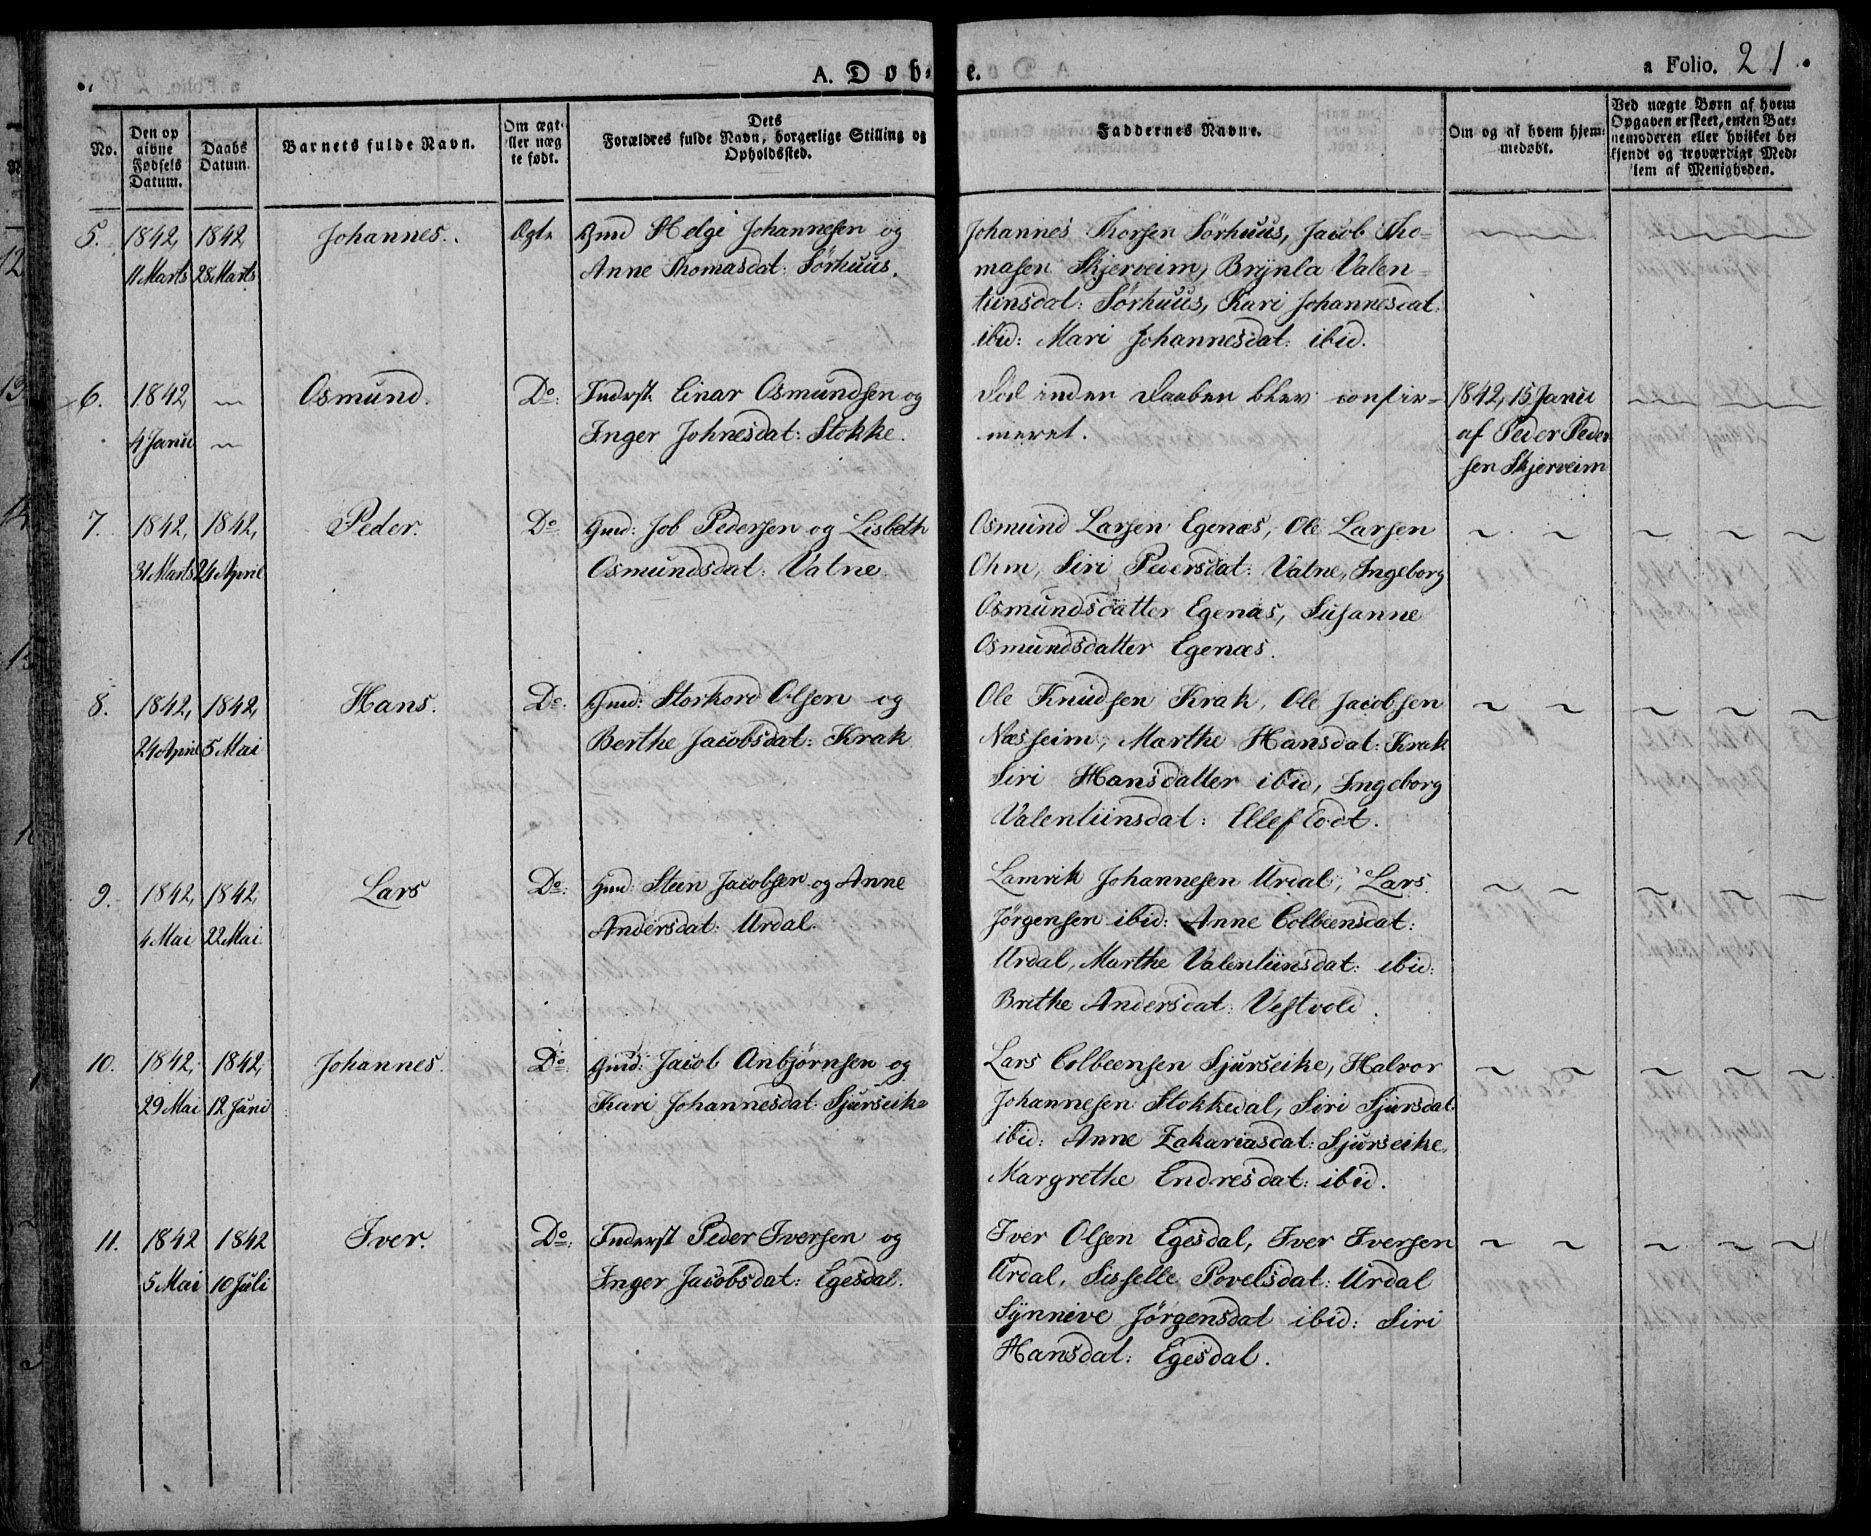 A. Døb- e.
a Folio. 21.
No.
Den op
givne
Fødsels
Datum.
Daabs
Datum.
Barnets fulde Navn.
Om ægt-
eller næg
te født.
Dets
Forældres fulde Navn, borgerlige Stilling og
Opholdssted.
Faddernes Navne.
Om og af hvem hjem-
medøbt.
Ved uægte Børn af hvem
Opgaven er skeet, enten Bar-
nemoderen eller hvilket be-
kjendt og troværdigt Med-
lem af Menigheden.
5. 1842, 1842, Johannes. Ægte Gmd Helge Johannesen og
11 Marts 28 Marts Anne Thomasdat: Sørhuus.
Johannes Thorsen Sørhuus, Jacob Tho-
masen Skjerveim, Brynla Valen-
tiinsdat: Sørhuus, Kari Johannesdat:
ibid: Mari Johannesdat: ibid.
6. 1842 Osmund. Do: Inderst. Einar Osmundsen og
4 Janu Inger Johnesdat: Stokke.
Død inden Daaben blev confir-
meret.
1842, 15 Janu
af Peder Peder
sen Skjerveim
7. 1842, 1842, Peder. Do Gmd: Job Pedersen og Lisbeth
31 Marts 24 April Osmundsdat: Vatne.
Osmund Larsen Egenæs, Ole Larsen
Ohm, Siri Pedersdat: Vatne, Ingeborg
Osmundsdatter Egenæs, Susanne
Osmundsdatter Egenæs.
8. 1842, 1842, Hans. Do: Gmd: Storkord Olsen og
24 April 5 Mai Berthe Jacobsdat: Krak
Ole Knudsen Krak, Ole Jacobsen
Næsheim, Marthe Hansdat: Krak
Siri Hansdatter ibid, Ingeborg
Valentiinsdat: Elleflodt.
9. 1842, 1842, Lars Do: Gmd: Steen Jacobsen og Anne
4 Mai 22 Mai Andersdat: Urdal.
Lamrik Johannesen Urdal, Lars
Jørgensen ibid: Anne Colbeensdat:
Urdal, Marthe Valentiinsdat: ibid:
Brithe Andersdat: Vestvold.
10. 1842, 1842, Johannes. Do: Gmd: Jacob Anbjørnsen og
29 Mai 12 Juni Kari Johannesdat: Sjurseike
Lars Colbeensen Sjurseike, Halvor
Johannesen Stokkedal, Siri Sjursdat
ibid: Anne Zakariasdat: Sjurseike,
Margrethe Endresdat: ibid.
11. 1842 1842 Iver. Do: Inderst Peder Iversen og
5 Mai 10 Juli Inger Jacobsdat: Egesdal.
Iver Olsen Egesdal, Iver Iversen
Urdal, Sisselle Povelsdat: Urdal
Synneve Jørgensdat ibid: Siri
Hansdat: Egesdal.